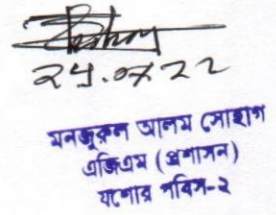 ২৪.০৭.২২
মনজুরুল আলম সোহাগ
এজিএম (প্রশাসন)
যশোর পবিস-২